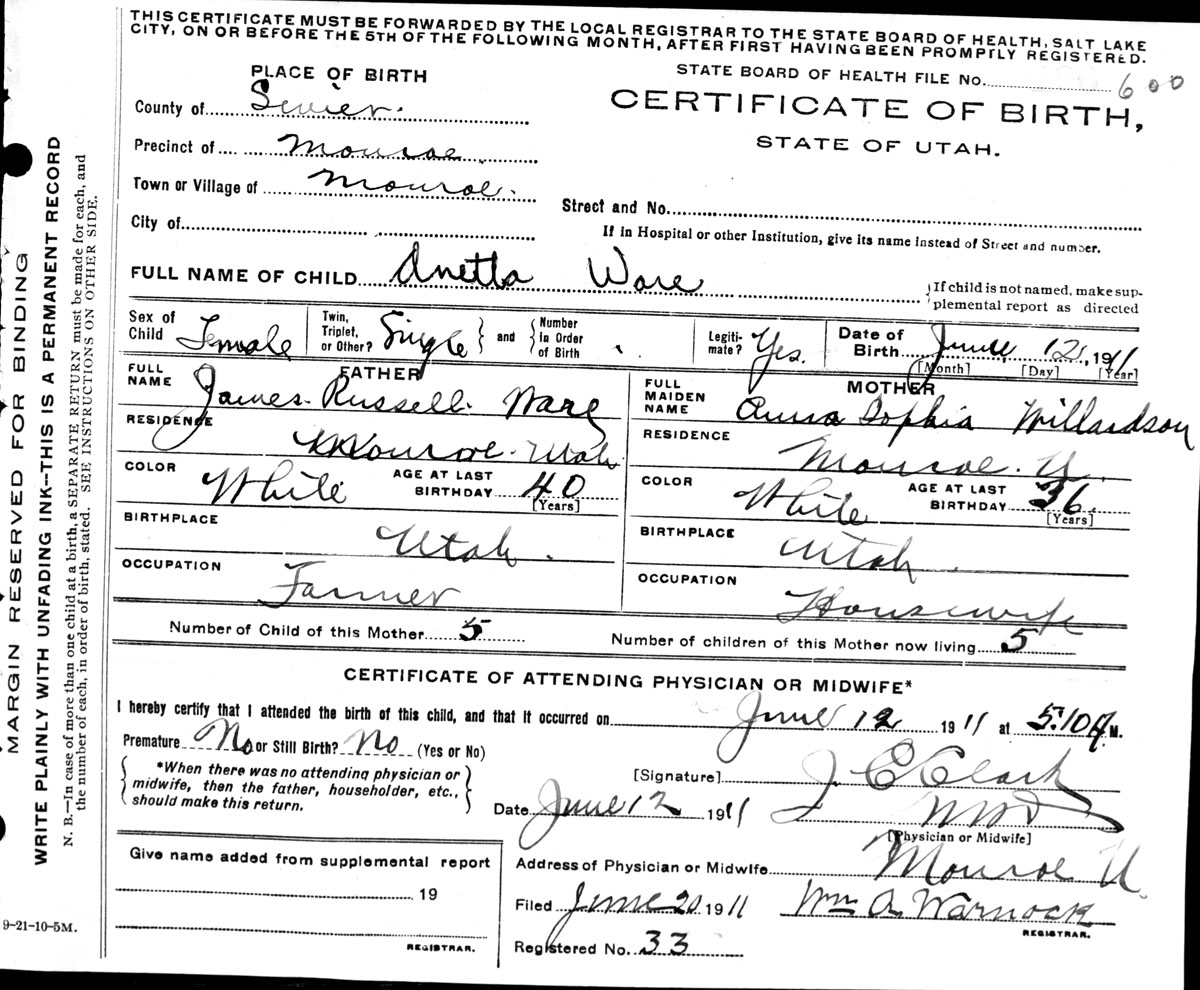 THIS CERTIFICATE MUST BE FORWARDED BY THE LOCAL REGISTRAR TO THE STATE BOARD OF HEALTH, SALT LAKE
CITY, ON OR BEFORE THE 5TH OF THE FOLLOWING MONTH, AFTER FIRST HAVING BEEN PROMPTLY REGISTERED.
PLACE OF BIRTH
STATE BOARD OF HEALTH FILE NO. 600
County of Sevier.
CERTIFICATE OF BIRTH,
STATE OF UTAH.
Precinct of Monroe.
Town or Village of Monroe.
Street and No.
City of
If in Hospital or other Institution, give its name instead of Street and number.
FULL NAME OF CHILD Anetta Ware
{If child is not named, make sup-
plemental report as directed
Sex of Child Female
Twin, Triplet, or Other? Single } and { Number in Order of Birth
Legiti-mate? Yes.
Date of Birth June 12, 1911
[Month] [Day] [Year]
FATHER
FULL NAME James. Russell. Ware
RESIDENCE Monroe. Utah.
COLOR White
AGE AT LAST BIRTHDAY 40
[Years]
BIRTHPLACE Utah.
OCCUPATION Farmer
MOTHER
FULL MAIDEN NAME Anna Sophia Willardson
RESIDENCE Monroe. U.
COLOR White
AGE AT LAST BIRTHDAY 36.
[Years]
BIRTHPLACE Utah.
OCCUPATION Housewife
Number of Child of this Mother 5
Number of children of this Mother now living 5
CERTIFICATE OF ATTENDING PHYSICIAN OR MIDWIFE*
I hereby certify that I attended the birth of this child, and that it occurred on June 12 1911 at 5:10 A.M.
Premature No or Still Birth? No (Yes or No)
{ *When there was no attending physician or
midwife, then the father, householder, etc.,
should make this return. }
[Signature] J. E. Clark
Date June 12 1911
M D
[Physician or Midwife]
Give name added from supplemental report
19
REGISTRAR.
Address of Physician or Midwife Monroe U.
Filed June 20 1911
Wm A. Warnock
REGISTRAR.
Registered No. 33
9-21-10-5M.
MARGIN RESERVED FOR BINDING
WRITE PLAINLY WITH UNFADING INK--THIS IS A PERMANENT RECORD
N. B.—In case of more than one child at a birth, a SEPARATE RETURN must be made for each, and
the number of each, in order of birth, stated. SEE INSTRUCTIONS ON OTHER SIDE.